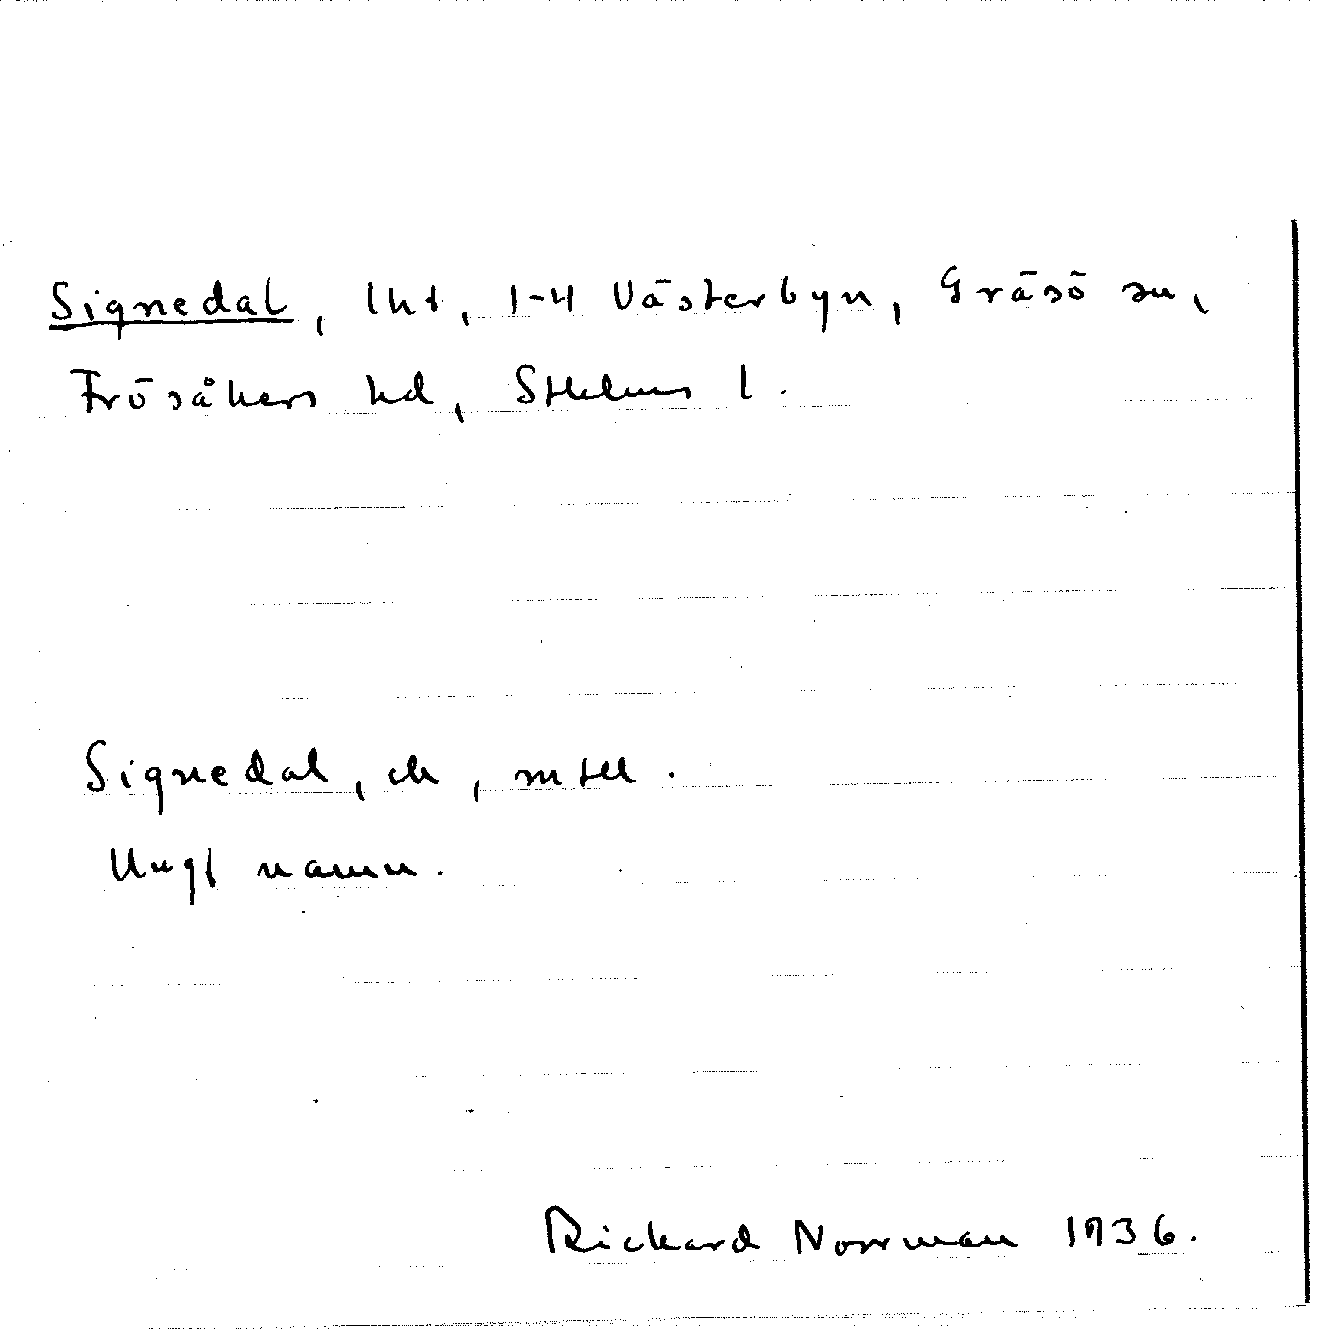 Signedal, lht, 1-4 Västerbyn, Gräsö sn,
Frösåkers hd, Sthlms l.
Signedal, ek, mtll.
Ungt namn.
Rickard Norrman 1936.